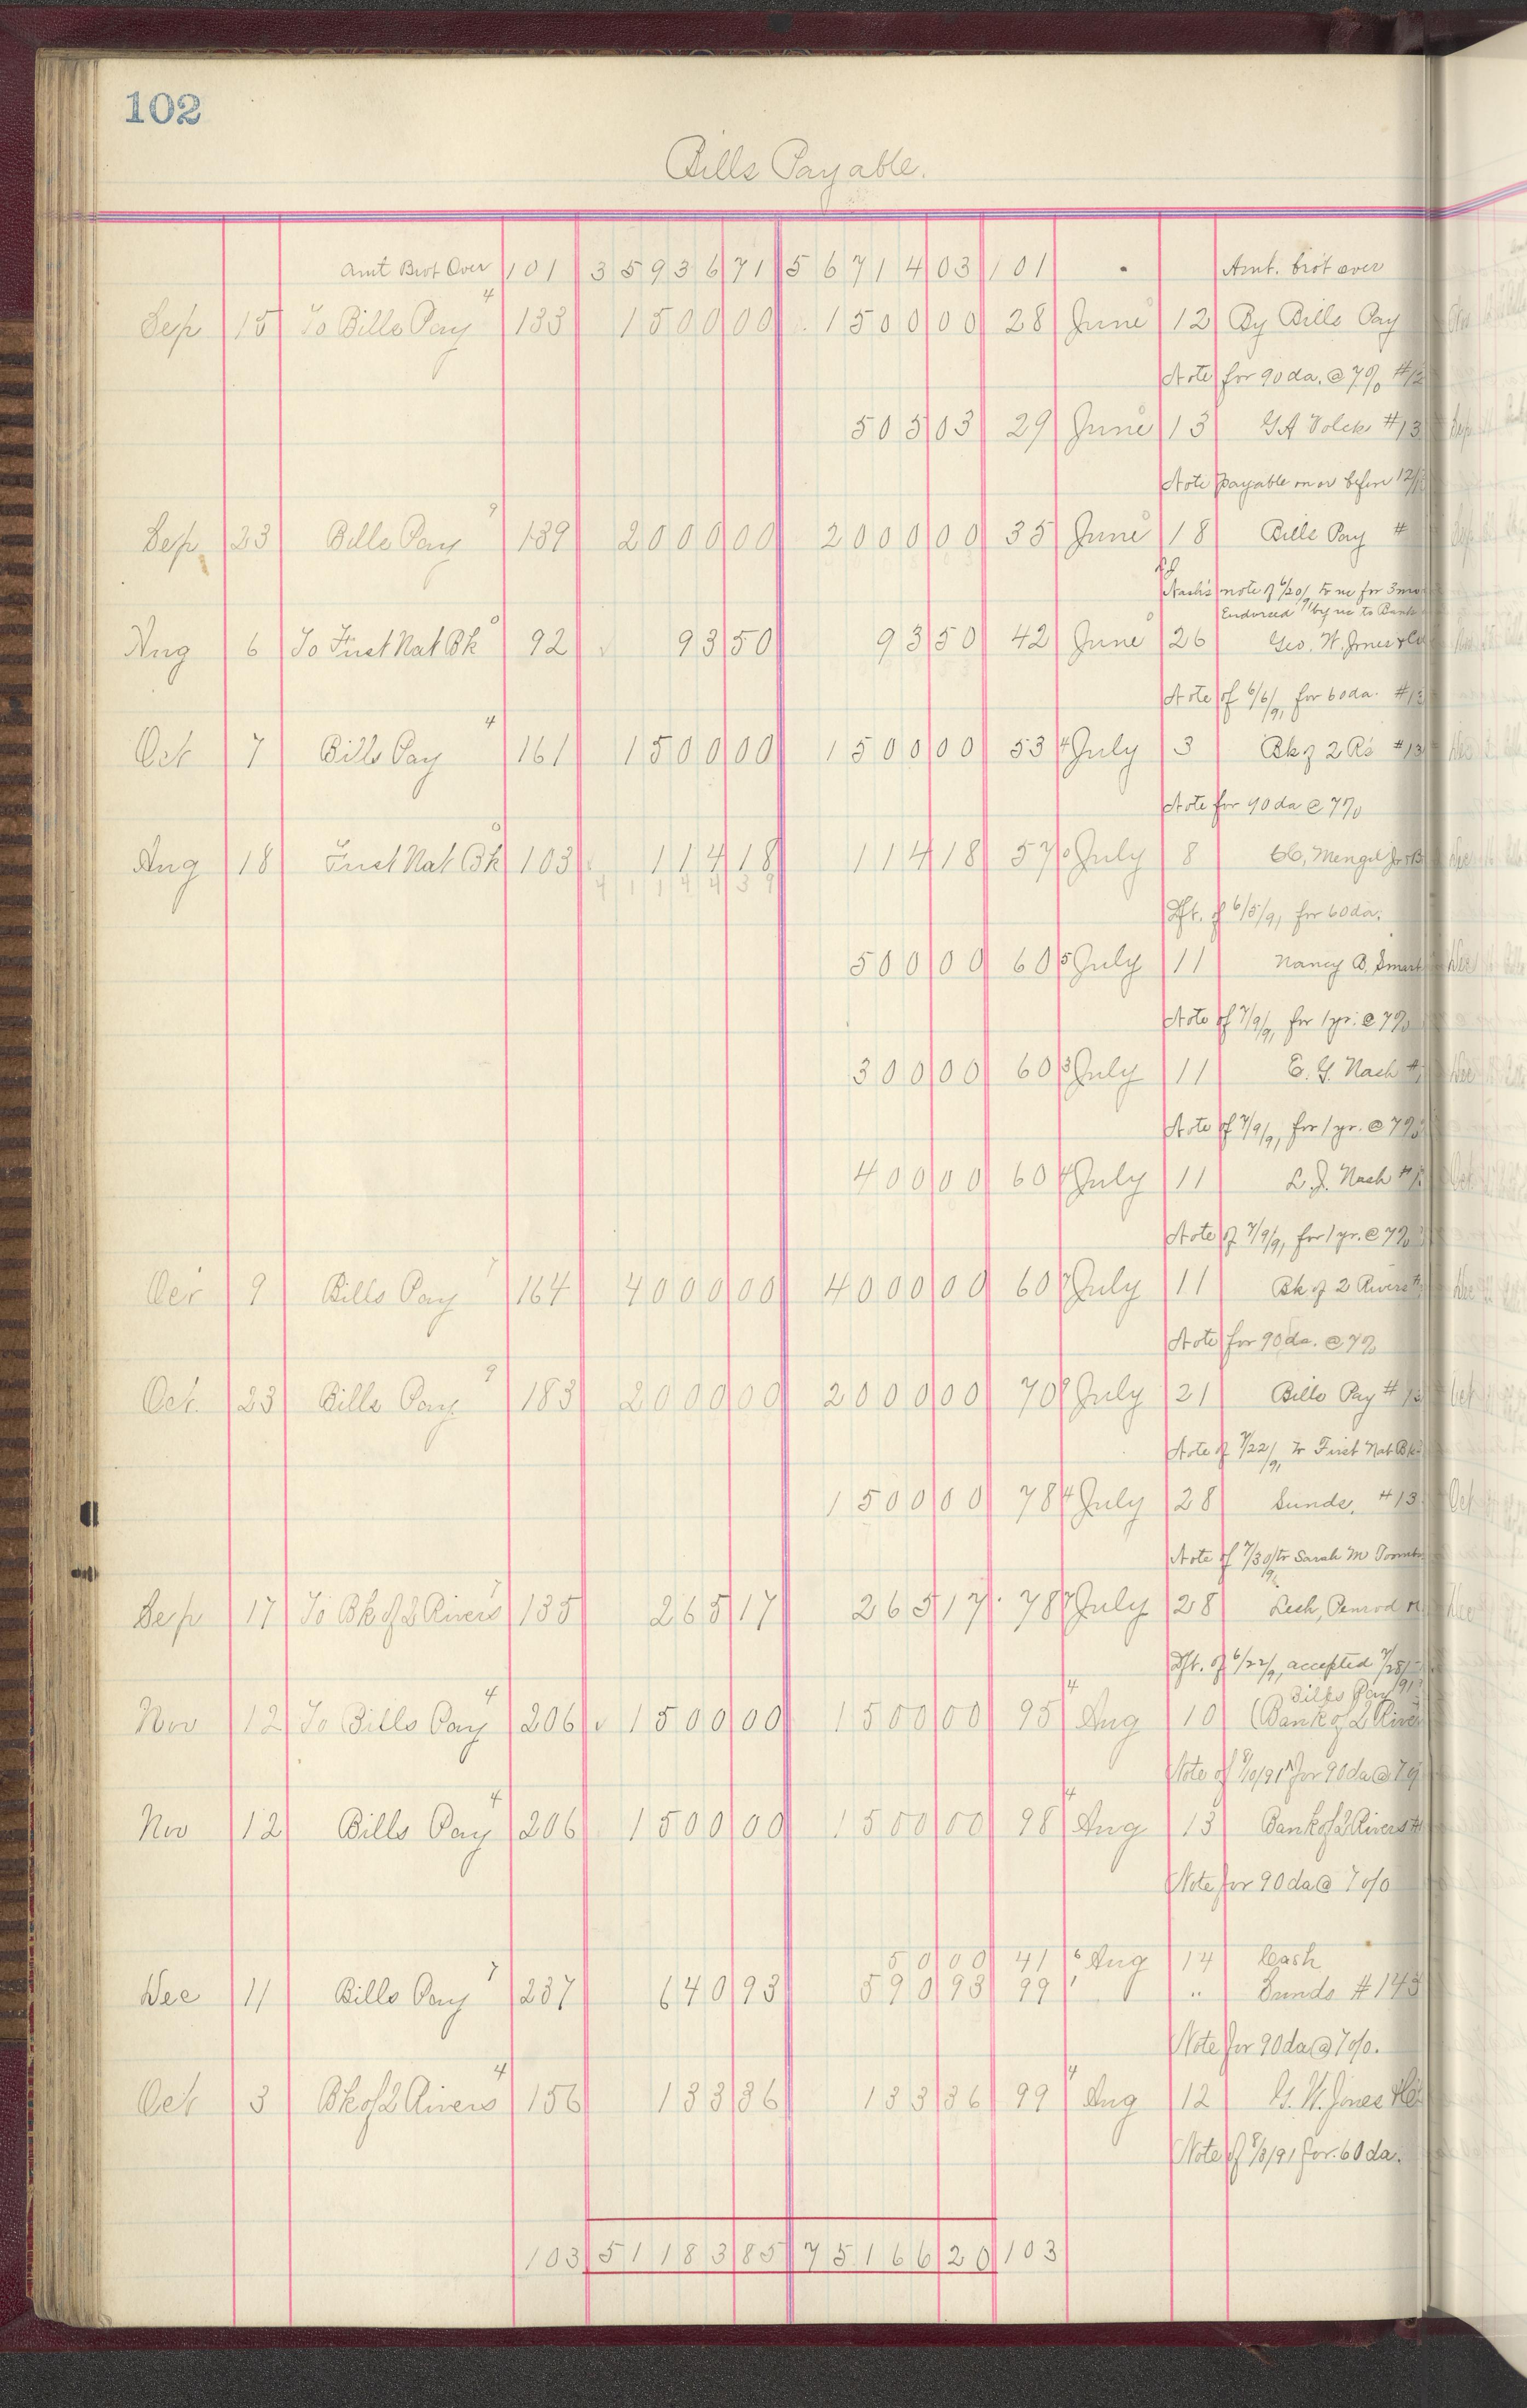 102
Bills Payable.
Amt Brot Over 101 35936 71 56714 03 101 Amt. brot over
Sep 15 To Bills Pay 4 133 1500 00 1500 00 28 June 12 By Bills Pay
Note for 90 da. @ 7%
505 03 29 June 13 G A Volck #13
Note payable on or before
Sep 23 Bills Pay 9 139 2000 00 2000 00 35 June 18 Bills Pay #
Nash's note of 6/20/91 to us for 3 mo
Endorsed by us to Bank
Aug 6 To First Nat Bk 92 93 50 93 50 42 June 26 Geo. W. Jones & Co
Note of 6/6/91 for 60 da.
Oct 7 Bills Pay 4 161 1500 00 1500 00 53 4 July 3 Bk of 2 Rs #13
Note for 90 da @ 7%
Aug 18 First Nat Bk 103 114 18 114 18 57 July 8 Mengel Jr & B
41144 39
Dft. of 6/5/91 for 60 da.
500 00 60 5 July 11 Nancy A. Smart
Note of 7/9/91 for 1 yr. @ 7%
300 00 60 3 July 11 E. G. Nash #
Note of 7/9/91 for 1 yr. @ 7%
400 00 60 4 July 11 L. J. Nash #
Note of 7/9/91 for 1 yr. @ 7%
Oct 9 Bills Pay 7 164 4000 00 4000 00 60 7 July 11 Bk of 2 Rivers
Note for 90 da. @ 7%
Oct. 23 Bills Pay 9 183 2000 00 2000 00 70 9 July 21 Bills Pay #
Note of 7/22/91 to First Nat Bk
1500 00 78 4 July 28 Sunds. #13
Note of 7/30/91 to Sarah M
Sep 17 To Bk of 2 Rivers 7 135 265 17 265 17 78 7 July 28 Lesh, Penrod
Dft. of 6/22/91 accepted 7/28/91
Bills Pay
Nov 12 To Bills Pay 4 206 1500 00 1500 00 95 4 Aug 10 (Bank of 2 River
Note of 8/10/91 for 90 da @ 7%
Nov 12 Bills Pay 4 206 1500 00 1500 00 98 4 Aug 13 Bank of 2 Rivers #
Note for 90 da @ 7 o/o
50 00 41 6 Aug 14 Cash
Dec 11 Bills Pay 7 237 640 93 590 93 99 " " Sunds #143
Note for 90 da @ 7 o/o.
Oct 3 Bk of 2 Rivers 4 156 133 36 133 36 99 4 Aug 12 G. W. Jones & Co
Note of 8/3/91 for 60 da.
103 51183 85 75166 20 103